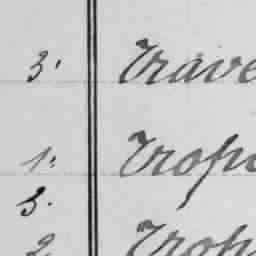 3. Trave
1. Trop
3.
2 Trop